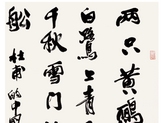 两只黄鹂
白鹭上青
千秋雪门
船
杜甫